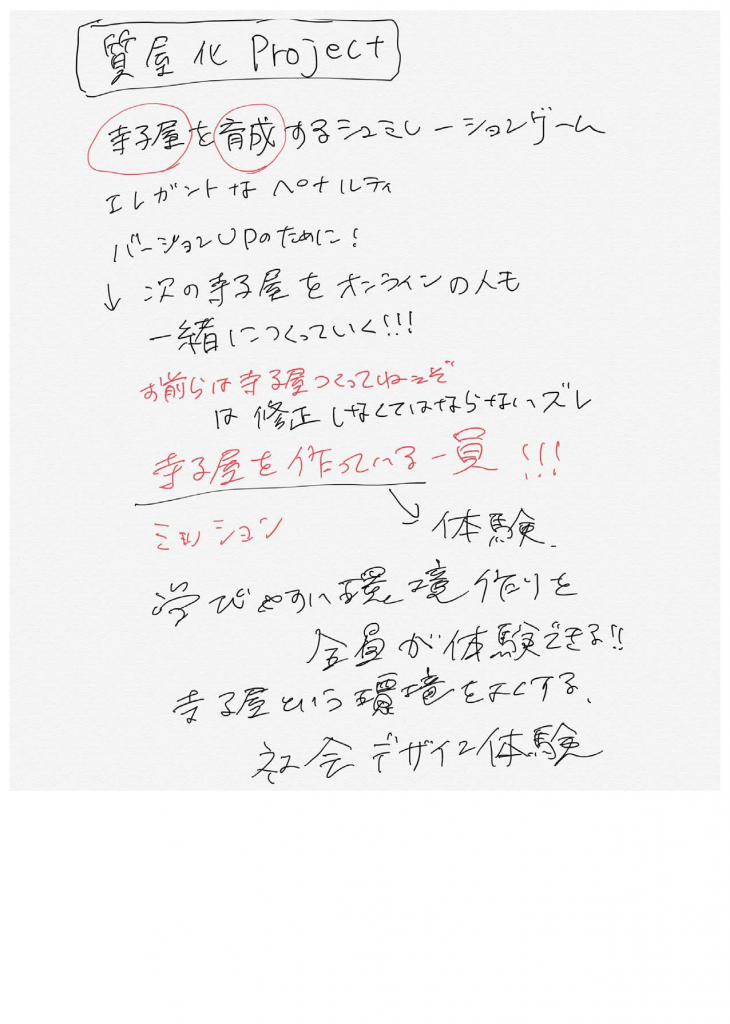 質屋化 Project
寺子屋を育成するシュミレーションゲーム
エレガントなペナルティ
バージョンUPのために!
↓ 次の寺子屋をオンラインの人も
一緒につくっていく!!!
お前らは寺子屋つくってねーぞ
は修正しなくてはならないズレ
寺子屋を作っている一員!!!
ミッション
体験
学びやすい環境作りを
全員が体験できる!!
寺子屋という環境をよくする、
社会デザイン体験